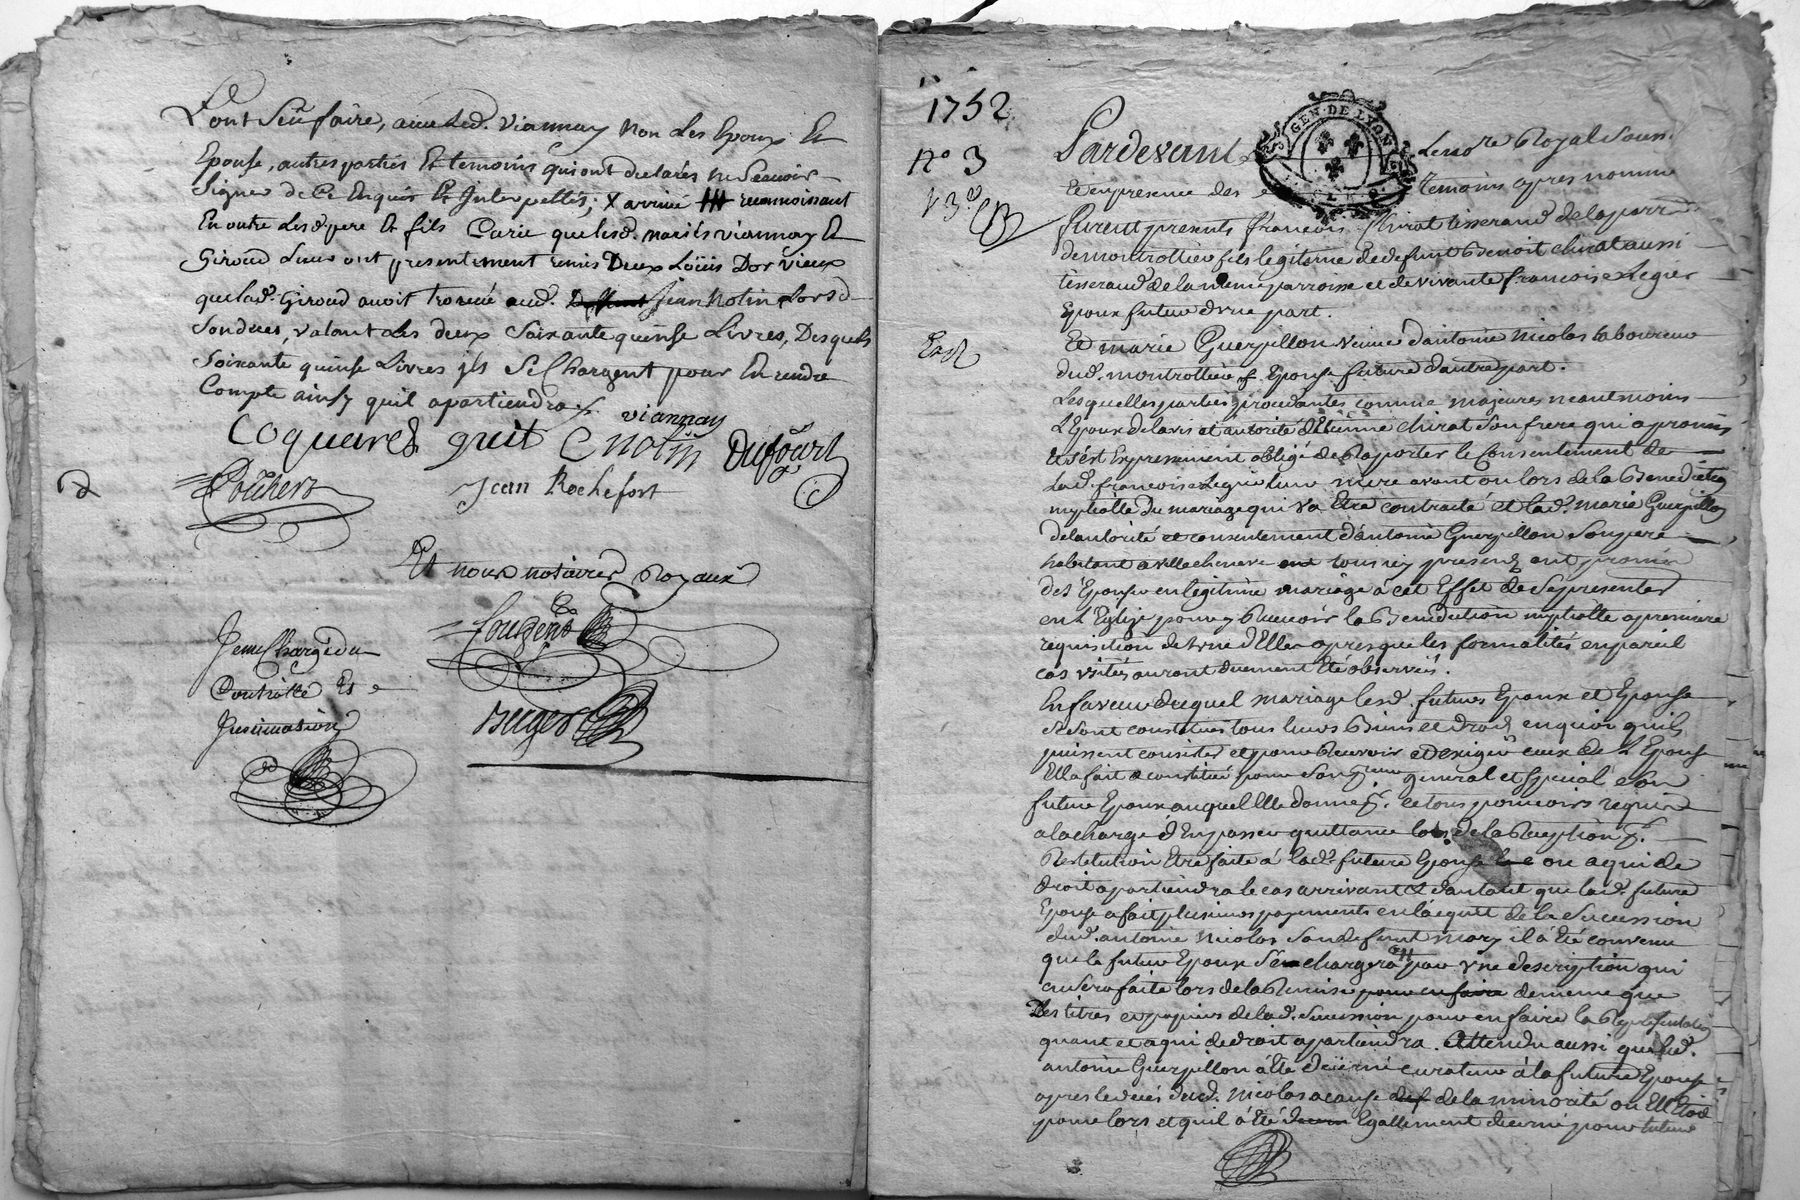 Lont Sçeu faire, avec led. Viannay non les Epoux Et
Epouse, autres parties Et temoins qui ont declarés ne Scavoir
Signer de Ce Enquis Et Interpellés; reconnoissant
En outre lesd. pere Et fils que lesd. mariés viannay Et
Giroud leur ont presentement remis Deux Loüis Dor vieux
que lad. Giroud avoit trouvé aud. Jean Notin Lors d
Sondeces, valant les deux Soixante quinse Livres, Desquels
Soixante quinse Livres jls Se Chargent pour En rendre
Compte ainsy quil apartiendra
viannay
Coquard guit C notin Dufourt
Jean Rochefort
Et nous notaires Royaux
Jeme Charge du
Controlle Et
Jnsinuation
1752
GEN. DE LYON
n° 3
Pardevant Le no.re Royal Souss.
et en presence des temoins apres nommé
furent presents françois Chirat tisserand de la parr.
de montrottier fils legitime de defunt Benoit chirat aussi
tisserand de la meme parroisse et de vivante francoise Legier
Epoux futur d'une part.
Et marie Guerpillon veuve d'antoine Nicolas laboureur
dud. montrottier Epouse future d'autre part.
Lesquelles parties procedantes comme majeures neantmoins
L'Epoux de lavis et autorité d'Etienne Chirat Son frere qui a promis
Et s'est Expressement obligé de Raporter le Consentement de
lad. francoise Legier leur mere avant ou lors de la Benediction
nuptialle du mariage qui va Etre contracté et lad. marie Guerpillon
de lautorité et consentement d'antoine Guerpillon Son pere
habitant a villechenene tous icy presens ont promis
de s'Epouser en legitime mariage à cet Effet de Se presenter
en L'Eglise pour y Recevoir la Benediction nuptialle a premiere
requisition de l'une d'Elles apres que les formalités en pareil
cas usitées auront duement Eté observeés.
En faveur duquel mariage lesd. futurs Epoux et Epouse
Se sont constitués tous leurs Biens et droits en quoy quils
puissent consister et pour Recevoir et Exiger ceux de L'Epouse
Ella fait & constitué pour Son general et Special Son
futur Epoux auquel Elle donne tous pouvoirs requis
a la charge d'En passer quittance lors de la Reception
Restitution Etre faite à lad. future Epouse ou a qui de
droit apartiendra le cas arrivant & d'autant que lad. future
Epouse a fait plusieurs payements en lacquit de la Succession
dud. antoine Nicolas Son defunt mary il à Eté convenu
que le futur Epoux S'en chargera par vne description qui
en Sera faite lors de la Remise pour en faire de meme que
Des titres et papiers de lad. Succession pour en faire la Representation
quant et a qui de droit apartiendra. Attendu aussi que led.
antoine Guerpillon à Eté decerné curateur à la future Epouse
apres le deces dud. Nicolas a cause de la minorité ou Elle Etoit
pour lors et quil à Eté Egallement decerné pour tuteur